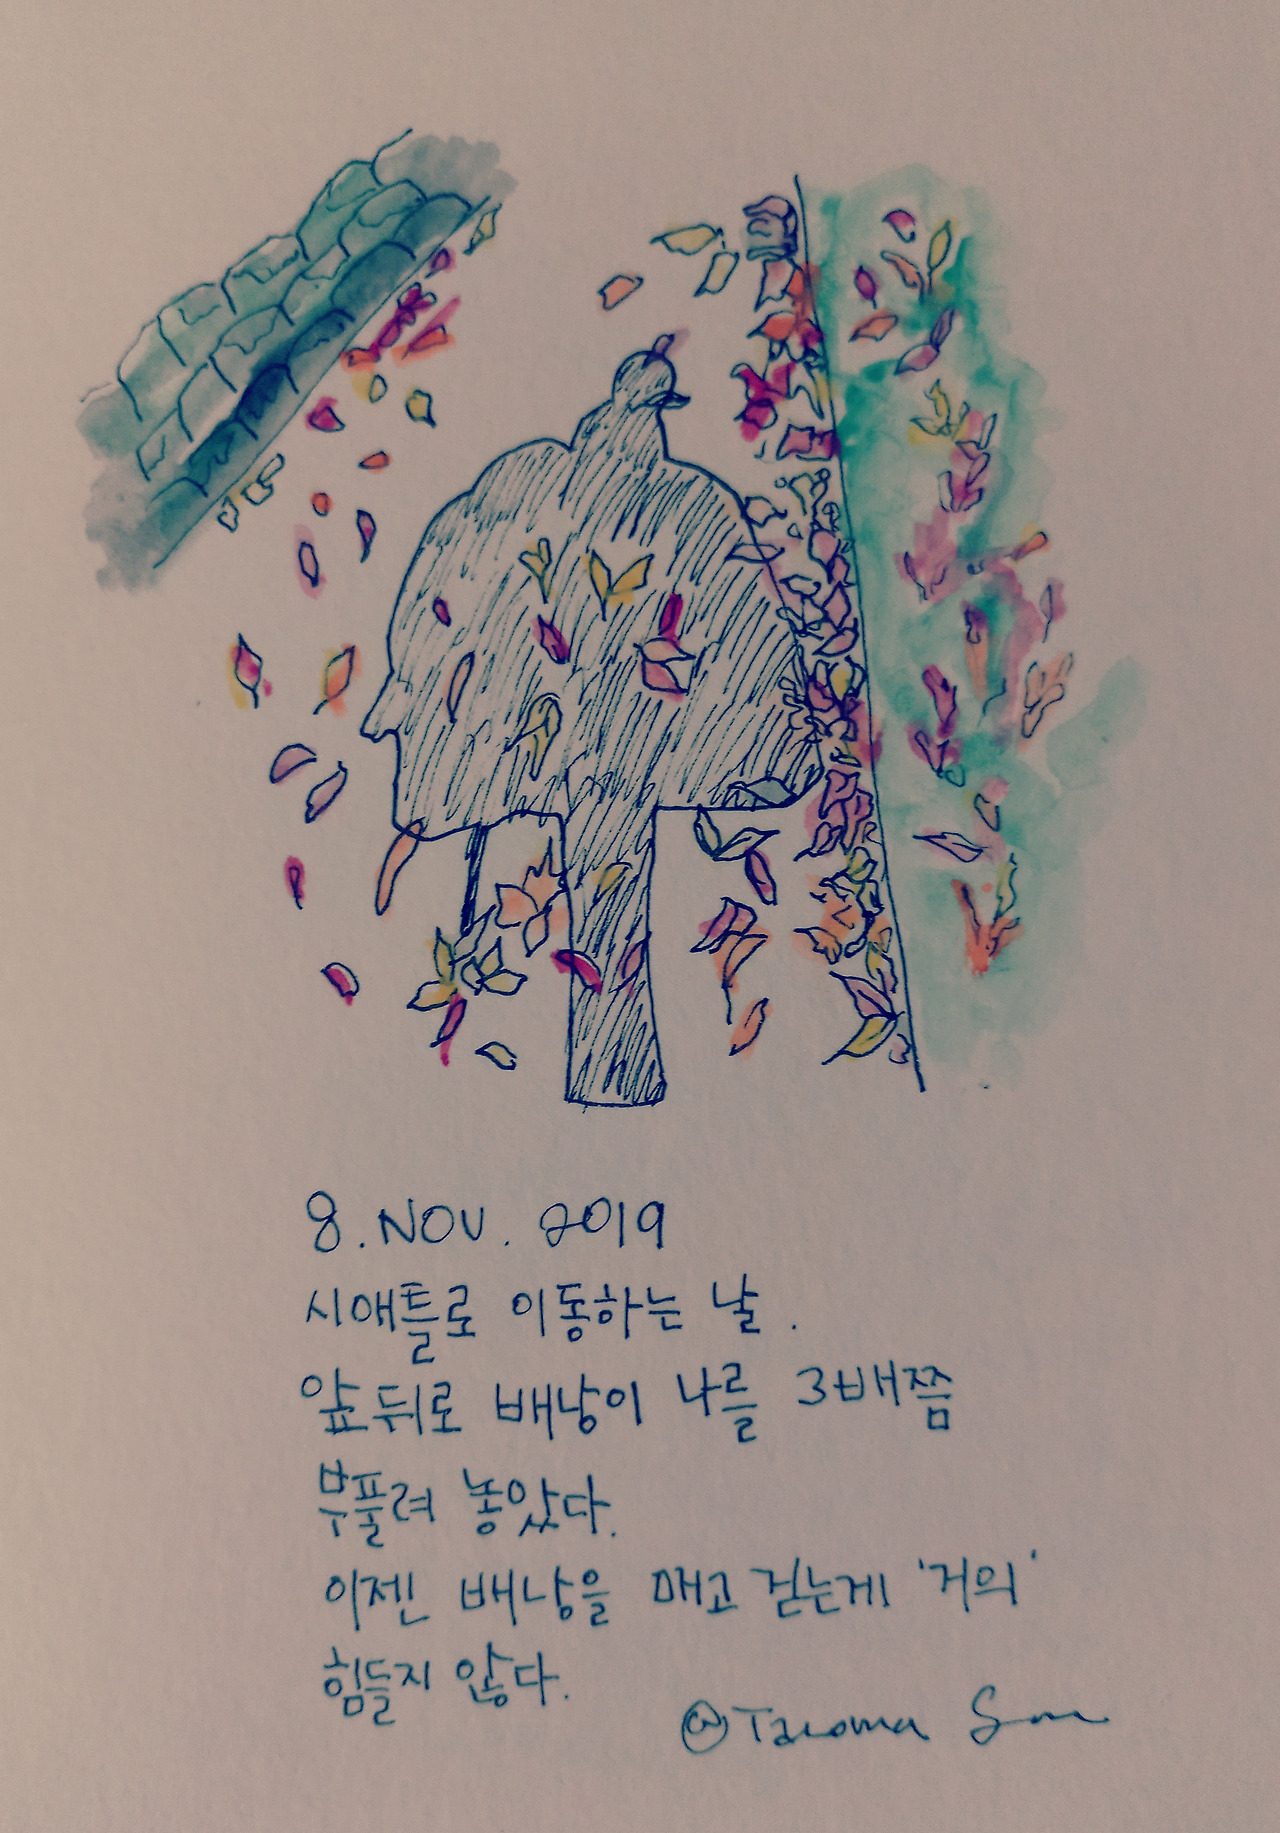 8. NOV. 2019
시애틀로 이동하는 날.
앞뒤로 배낭이 나를 3배쯤
부풀려 놓았다.
이젠 배낭을 매고 걷는게 '거의'
힘들지 않다.
@Tacoma